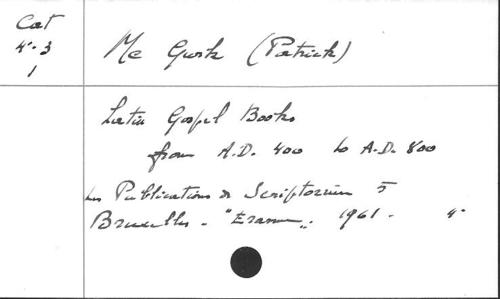 Cat
4°-3
1
Mc Gurk (Patrick)
Latin Gospel Books
from A.D. 400 to A.D. 800
Les Publications de Scriptorium 5
Bruxelles - "Erasme„ 1961 - 4°